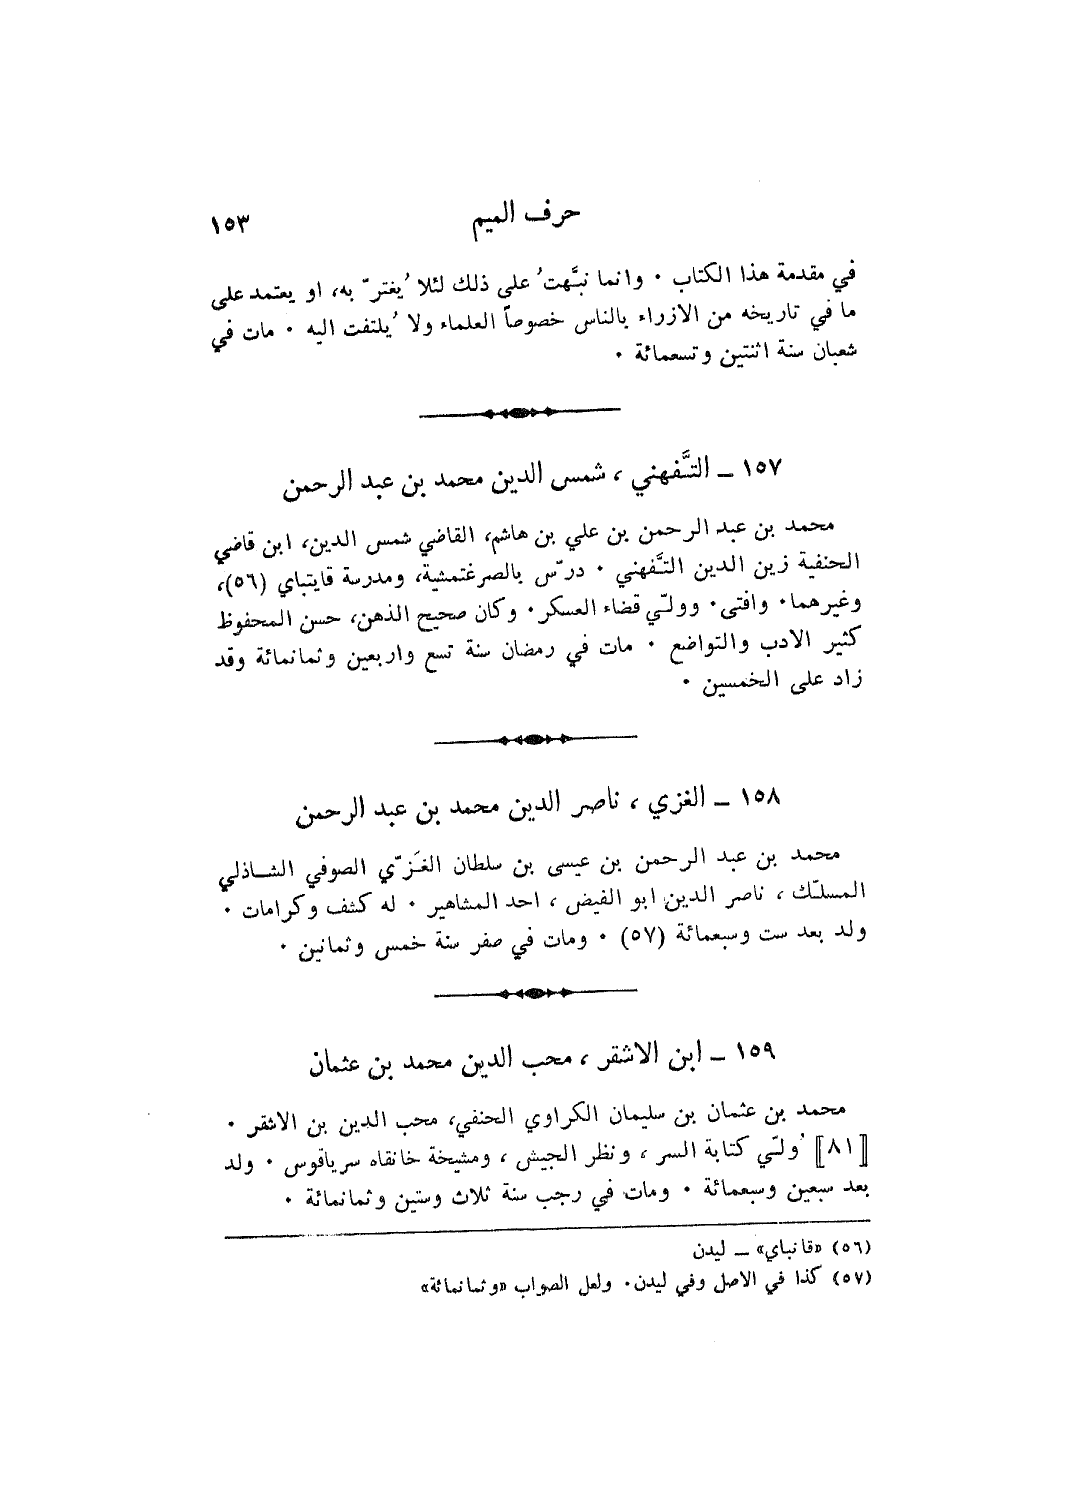 حرف الميم ١٥٣
في مقدمة هذا الكتاب ٠ وانما نبَّهتُ على ذلك لئلا يُغترّ به، او يعتمد على
ما في تاريخه من الازراء بالناس خصوصاً العلماء ولا يُلتفت اليه ٠ مات في
شعبان سنة اثنتين وتسعمائة ٠
١٥٧ ــ التَّفهني ، شمس الدين محمد بن عبد الرحمن
محمد بن عبد الرحمن بن علي بن هاشم، القاضي شمس الدين، ابن قاضي
الحنفية زين الدين التَّفهني ٠ درّس بالصرغتمشية، ومدرسة قايتباي (٥٦)،
وغيرهما٠ وافتى٠ وولّي قضاء العسكر٠ وكان صحيح الذهن، حسن المحفوظ
كثير الادب والتواضع ٠ مات في رمضان سنة تسع واربعين وثمانمائة وقد
زاد على الخمسين ٠
١٥٨ ــ الغزي ، ناصر الدين محمد بن عبد الرحمن
محمد بن عبد الرحمن بن عيسى بن سلطان الغَزّي الصوفي الشاذلي
المسلّك ، ناصر الدين ابو الفيض ، احد المشاهير ٠ له كشف وكرامات ٠
ولد بعد ست وسبعمائة (٥٧) ٠ ومات في صفر سنة خمس وثمانين ٠
١٥٩ ــ ابن الاشقر ، محب الدين محمد بن عثمان
محمد بن عثمان بن سليمان الكراوي الحنفي، محب الدين بن الاشقر ٠
[٨١] وُلّي كتابة السر ، ونظر الجيش ، ومشيخة خانقاه سرياقوس ٠ ولد
بعد سبعين وسبعمائة ٠ ومات في رجب سنة ثلاث وستين وثمانمائة ٠
(٥٦) «قانباي» ــ ليدن
(٥٧) كذا في الاصل وفي ليدن٠ ولعل الصواب «وثمانمائة»